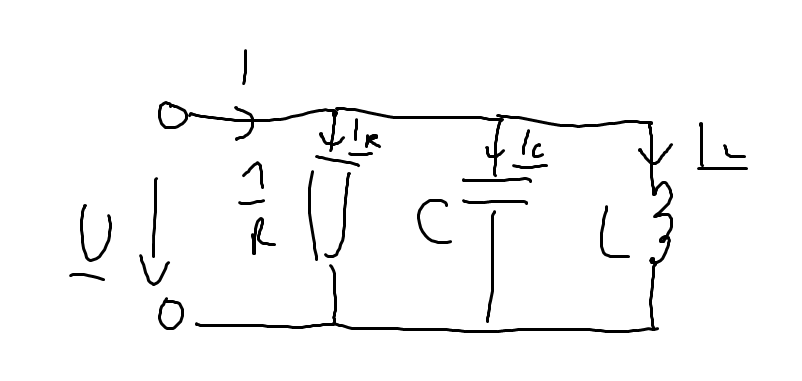 I
I_R
I_C
I_L
U
1/R
C
L